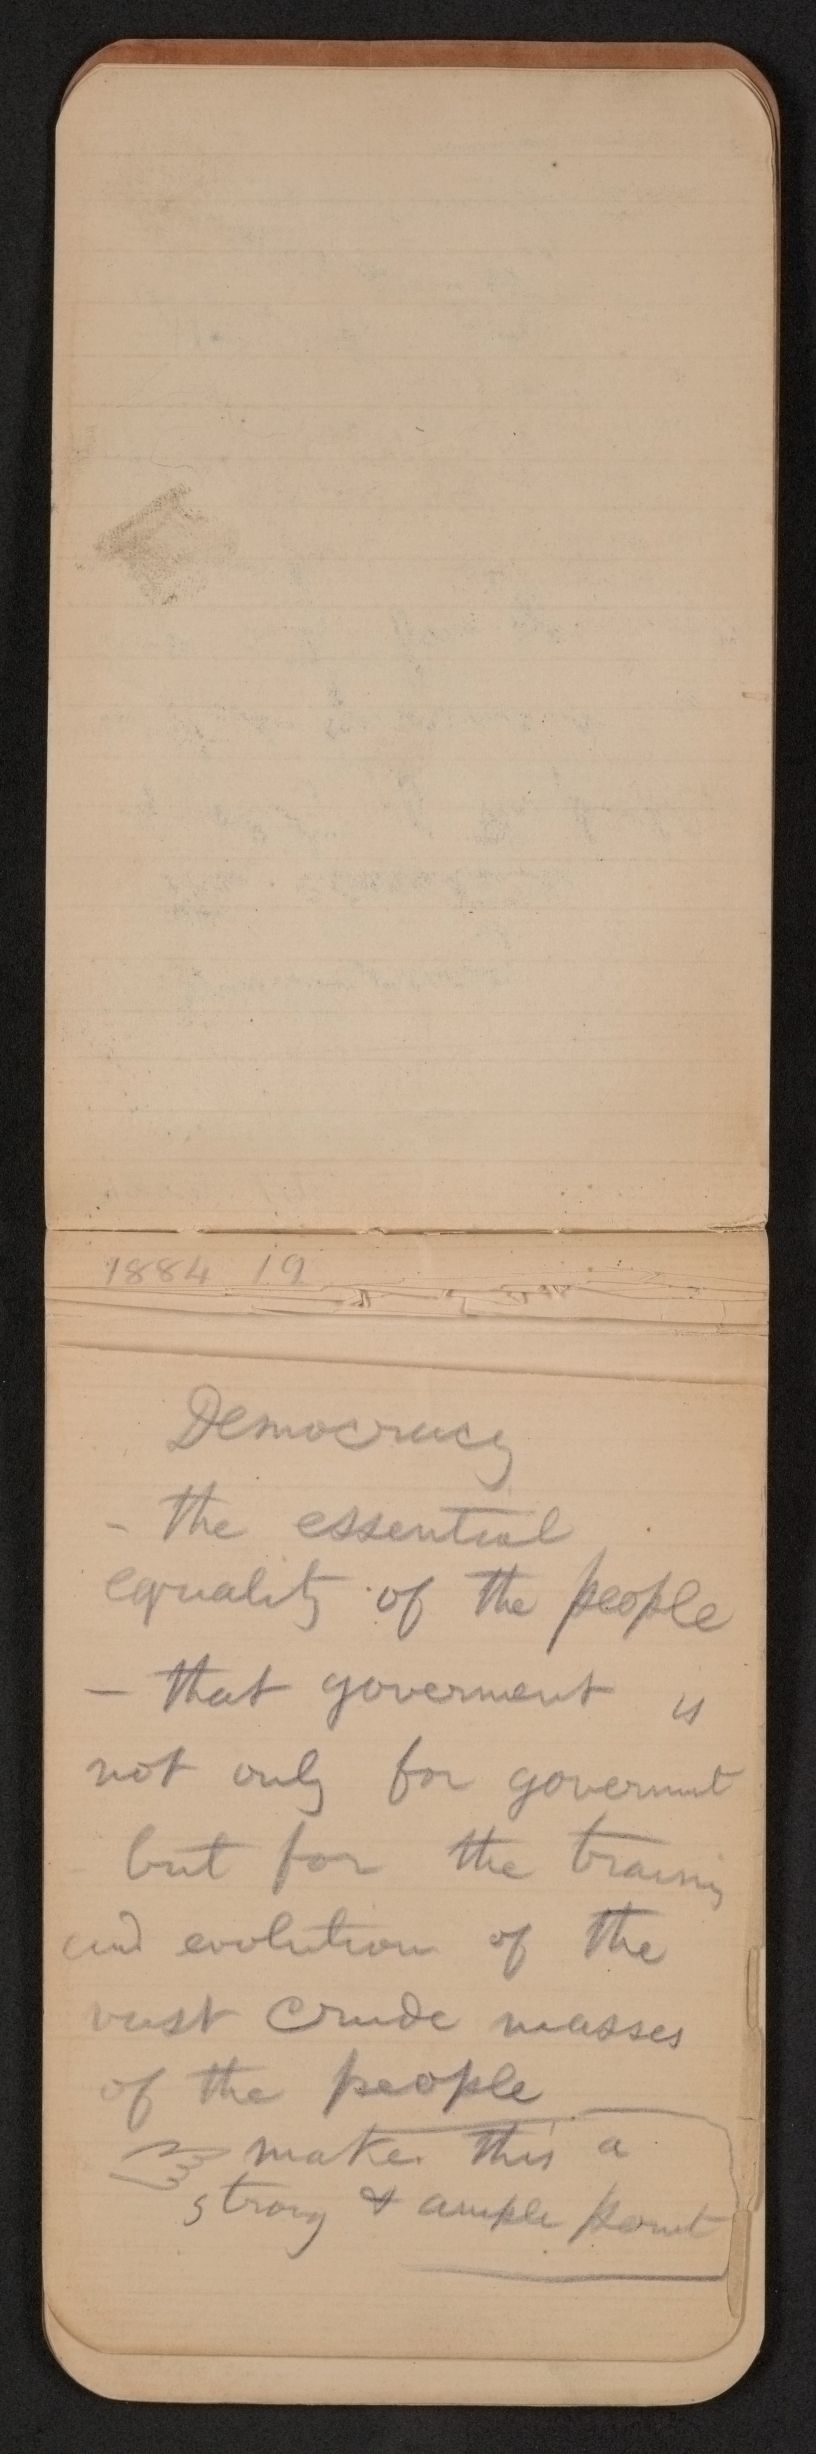 1884 19
Democracy
- the essential
equality of the people
- that goverment is
not only for governmt
but for the training
and evolution of the
vast crude masses
of the people
make this a
strong & ample point